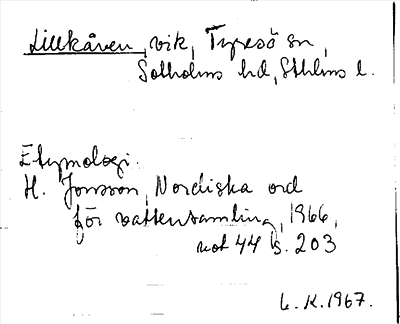 Lillkåven, vik, Tyresö sn,
Sotholms hd, Sthlms l.
Etymologi.
H. Jonsson, Nordiska ord
för vattensamling, 1966,
not 44 s. 203
L. K. 1967.